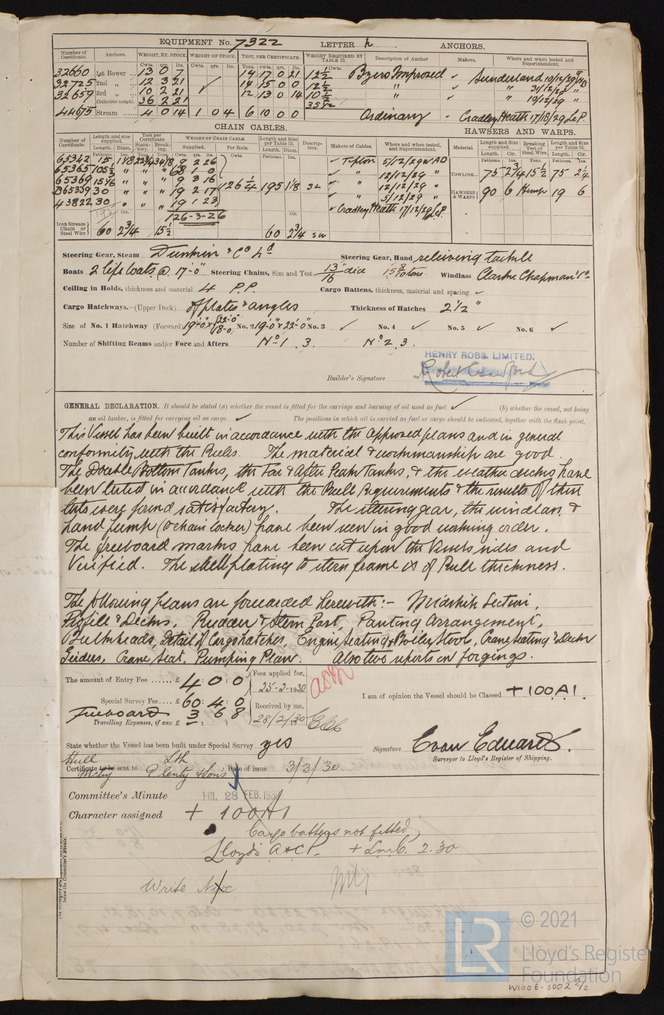 EQUIPMENT No. 7322 LETTER h ANCHORS.
Number of Certificate. Anchors. WEIGHT, EX. STOCK. WEIGHT OF STOCK. TEST, PER CERTIFICATE. WEIGHT REQUIRED BY TABLE 31. Description of Anchor Makers. Where and when tested and Superintendent.
32660 1st Bower 13 0 7 14 17 0 21 12½ Byers Improved Sunderland 10/12/29
32725 2nd " 12 3 21 14 15 0 0 12½ " " 31/12/29 "
32659 3rd " 10 2 21 12 13 0 14 10½ " " 10/12/29 "
Collective weight. 36 2 21 35½
44675 Stream 4 0 14 1 0 4 6 10 0 0 Ordinary Cradley Heath 17/12/29 L.P.
CHAIN CABLES. HAWSERS AND WARPS.
Number of Certificate. Length and size supplied. Test per Certificate. WEIGHT OF CHAIN CABLE. Length and size per Table 31. Description. Makers of Cables. Where and when tested, and Superintendent. Material Length and Size supplied. Breaking Test of Steel Wire. Length and Size per Table 31.
Supplied. Per Rule.
65342 15 1 1/8 8 3 26 Tipton 5/12/29
65365 105½ " " 68 1 0 " 12/12/29 " TOWLINE 75 2¼ 15½ 75 2¼
65369 15 1/6 " " 9 3 16 126¼ 195 1/8 " 12/12/29 "
65339 30 " " 19 2 17 " 5/12/29 " HAWSERS & WARPS 90 6 Hemp 19 6
43822 30 " " 19 1 23 Cradley Heath 17/12/29 L.P.
126-3-26
Iron Stream Chain or Steel Wire 60 2¾ 15½ 60 2¾ S W
Steering Gear, Steam Dunkin & Co Ld Steering Gear, Hand relieving tackle
Boats 2 lifeboats @ 17'-0" Steering Chains, Size and Test 13/16 dia 15 tons Windlass Clarke Chapman & Co
Ceiling in Holds, thickness and material 4 P.P. Cargo Battens, thickness, material and spacing ✓
Cargo Hatchways.—(Upper Deck) of plates & angles Thickness of Hatches 2½"
Size of No. 1 Hatchway (Forward) 19'-0" x 22'-0" 18'-0" No. 2 19'-0" x 22'-0" No. 3 ✓ No. 4 ✓ No. 5 ✓ No. 6 ✓
Number of Shifting Beams and/or Fore and Afters No 1. 3. No 2. 3.
HENRY ROBB. LIMITED.
Builder's Signature
GENERAL DECLARATION. It should be stated (a) whether the vessel is fitted for the carriage and burning of oil used as fuel ✓ (b) whether the vessel, not being
an oil tanker, is fitted for carrying oil as cargo ✓ The positions in which oil is carried as fuel or cargo should be indicated, together with the flash point.
This Vessel has been built in accordance with the approved plans and in general
conformity with the Rules. The material & workmanship are good.
The Double Bottom Tanks, the Fore & After Peak Tanks, & the weather decks have
been tested in accordance with the Rule Requirements & the results of these
tests were found satisfactory. The steering gear, the windlass &
hand pump (to chain locker) have been seen in good working order.
The freeboard marks have been cut upon the Vessels sides and
Verified. The shell plating to stern frame is of Rule thickness.
The following plans are forwarded herewith:- Midship Section,
Profile & Decks, Rudder & Stern Post, Panting Arrangement,
Bulkheads, Detail of Cargo hatches, Engine Seating & Boiler Stool, Crane Seating & Deck
Girders, Crane Seat, Pumping Plan. Also two reports on forgings.
The amount of Entry Fee £ 4 : 0 : 0 Fees applied for, 25-2-1930
Special Survey Fee £ 60 : 4 : 0 Received by me,
Freeboard 3 6 8 28/2/30
Travelling Expenses, if any £
I am of opinion the Vessel should be Classed +100A1.
State whether the Vessel has been built under Special Survey yes Signature Evan Edwards.
Surveyor to Lloyd's Register of Shipping.
Hull Lth
Certificate to be sent to Mchy Plenty & Sons Date of issue 3/3/30
Committee's Minute FRI. 28 FEB. 1930
Character assigned + 100A1
Cargo battens not fitted,
Lloyd's A&CP. + LMC 2.30
Write
LR © 2021
Lloyd's Register
Foundation
W1006-0002 2/2